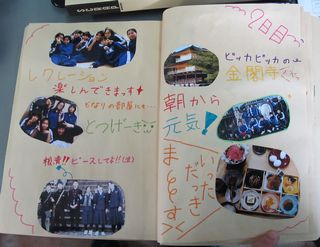 レクレーション
楽しんできまっす
となりの部屋にも…
とつげーき
根東!!ピースしてる!!(泣)
2日目
ピッカピッカの
金閣寺
朝から
元気!
いったっ
だっき
まーす